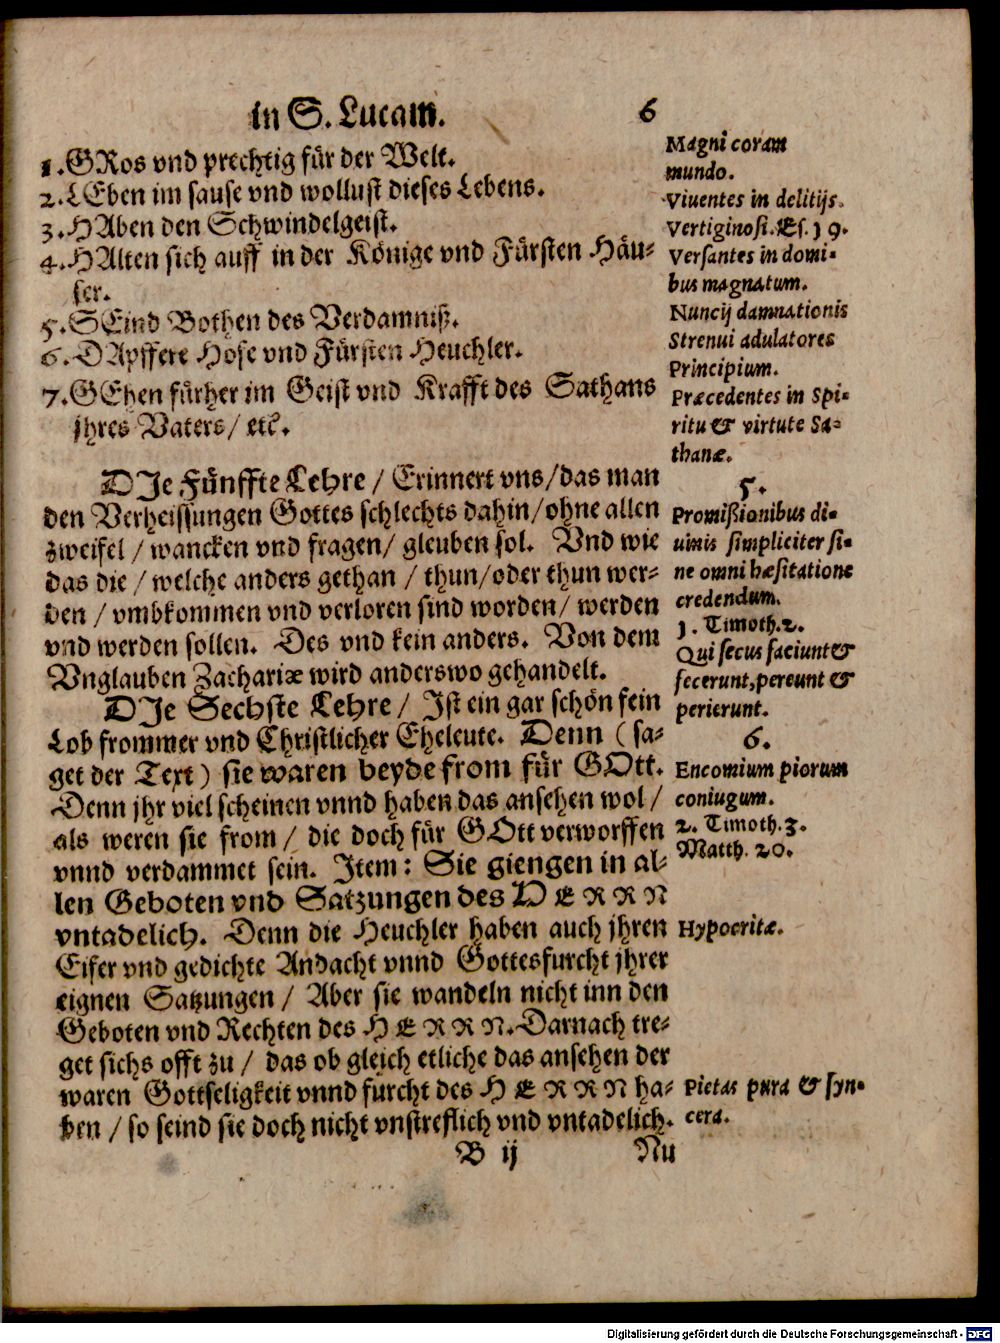 in S. Lucam. 6
1. GRos vnd prechtig für der Welt.
2. LEben im sause vnd wollust dieses Lebens.
3. HAben den Schwindelgeist.
4. HAlten sich auff in der Könige vnd Fürsten Häu-
ser.
5. SEind Bothen des Verdamniß.
6. DApffere Hofe vnd Fürsten Heuchler.
7. GEhen fürher im Geist vnd Krafft des Sathans
jhres Vaters/ etc.
DIe Fünffte Lehre / Erinnert vns/das man
den Verheissungen Gottes schlechts dahin/ohne allen
zweifel / wancken vnd fragen/ gleuben sol. Vnd wie
das die / welche anders gethan / thun/oder thun wer-
den / vmbkommen vnd verloren sind worden/ werden
vnd werden sollen. Des vnd kein anders. Von dem
Vnglauben Zachariæ wird anderswo gehandelt.
DIe Sechste Lehre / Ist ein gar schön fein
Lob frommer vnd Christlicher Eheleute. Denn (sa-
get der Text) sie waren beyde from für GOtt.
Denn jhr viel scheinen vnnd haben das ansehen wol /
als weren sie from / die doch für GOtt verworffen
vnnd verdammet sein. Item: Sie giengen in al-
len Geboten vnd Satzungen des HERRN
vntadelich. Denn die Heuchler haben auch jhren
Eifer vnd gedichte Andacht vnnd Gottesfurcht jhrer
eignen Satzungen / Aber sie wandeln nicht inn den
Geboten vnd Rechten des HERRN. Darnach tre-
get sichs offt zu / das ob gleich etliche das ansehen der
waren Gottseligkeit vnnd furcht des HERRN ha-
ben / so seind sie doch nicht vnstreflich vnd vntadelich.
B ij Nu
Magni coram
mundo.
Viuentes in delitijs.
Vertiginosi. Es. 19.
Versantes in domi-
bus magnatum.
Nuncij damnationis
Strenui adulatores
Principium.
Præcedentes in Spi-
ritu & virtute Sa-
thanæ.
5.
Promißionibus di-
uinis simpliciter si-
ne omni hæsitatione
credendum.
1. Timoth. 2.
Qui secus faciunt &
fecerunt, pereunt &
perierunt.
6.
Encomium piorum
coniugum.
2. Timoth. 3.
Matth. 20.
Hypocritæ.
Pietas pura & syn-
cera.
Digitalisierung gefördert durch die Deutsche Forschungsgemeinschaft - DFG